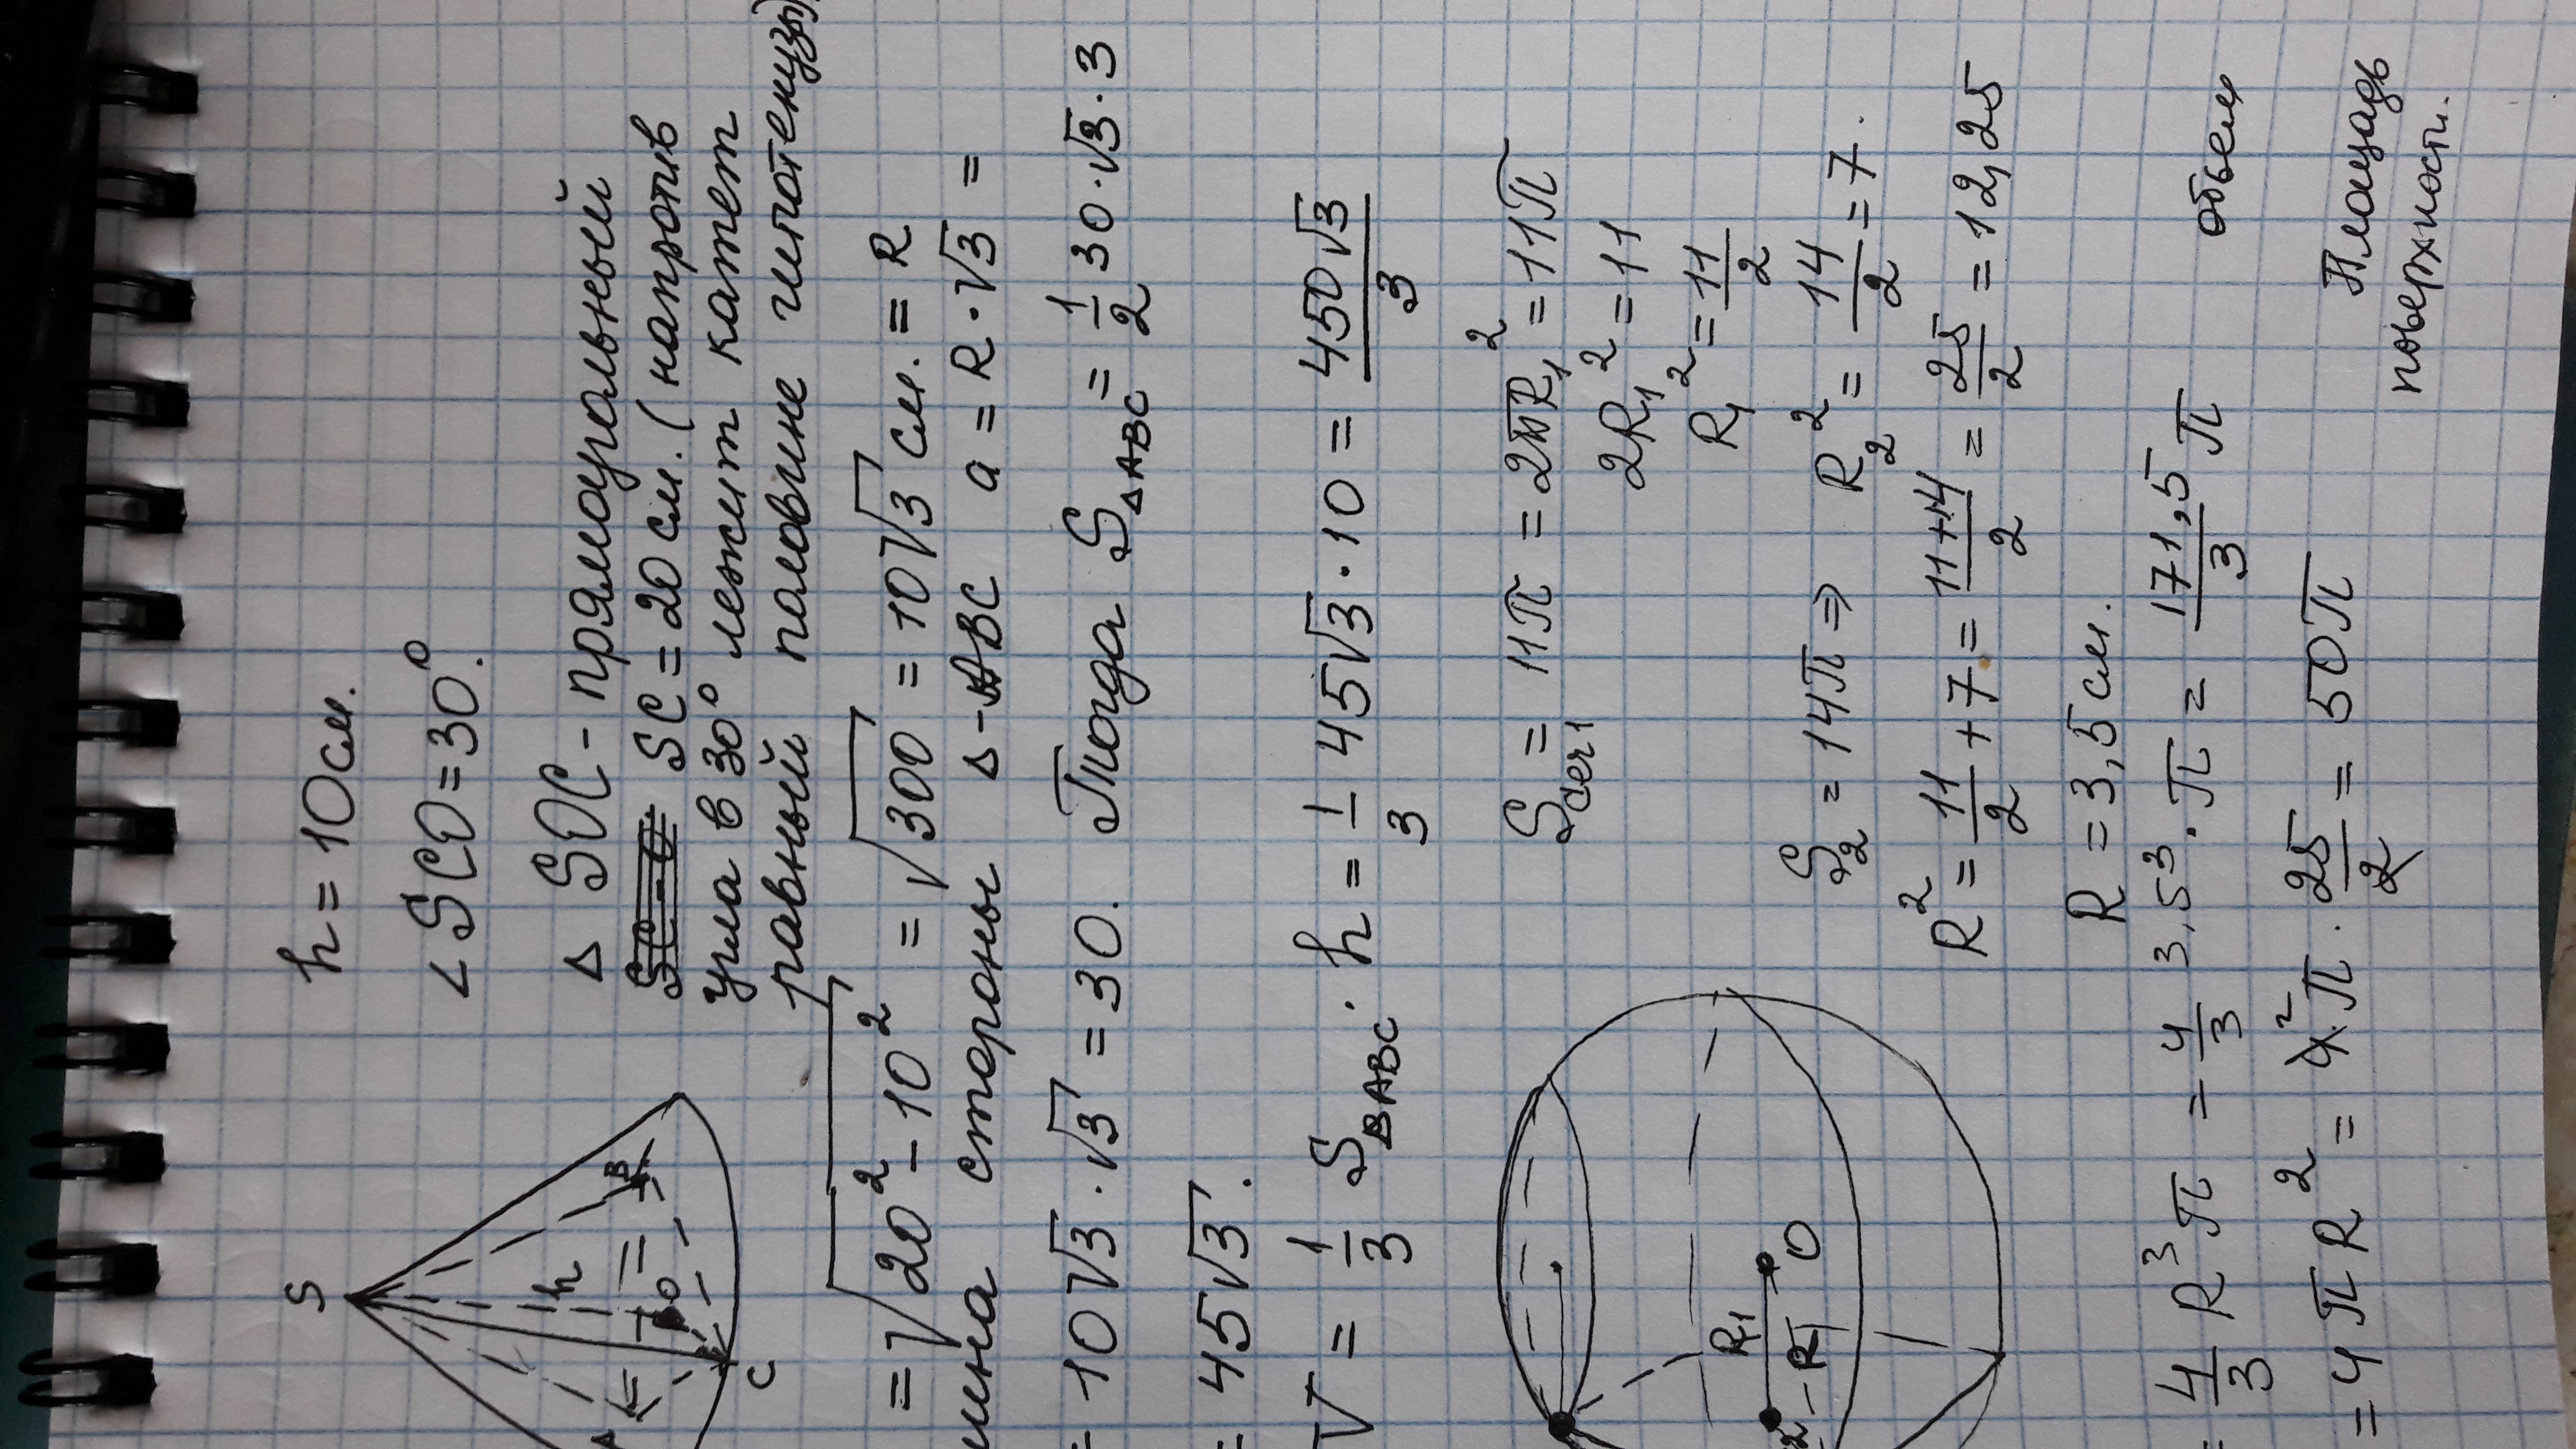 S
h
A
B
O
C
h = 10 см.
∠ SCO = 30°.
Δ SOC - прямоугольный
SC = 20 см. ( напротив
угла в 30° лежит катет
равный половине гипотенузы)
= √20² - 10² = √300 = 10√3 см. = R
стороны Δ - ABC a = R · √3 =
10√3 · √3 = 30. Тогда S ΔABC = 1/2 30 · √3 · 3
= 45√3.
V = 1/3 S ΔABC · h = 1/3 45√3 · 10 = 450√3/3
Sсеч1 = 11π = 2πR₁² = 11π
2R₁² = 11
R₁² = 11/2
S₂ = 14π ⇒ R₂² = 14/2 = 7.
R² = 11/2 + 7 = 11+14/2 = 25/2 = 12,25
R₁
O
R = 3,5 см.
= 4/3 R³π = 4/3 3,5³ · π = 171,5/3 π объем
= 4πR² = 4² π · 25/2 = 50π Площадь
поверхности.